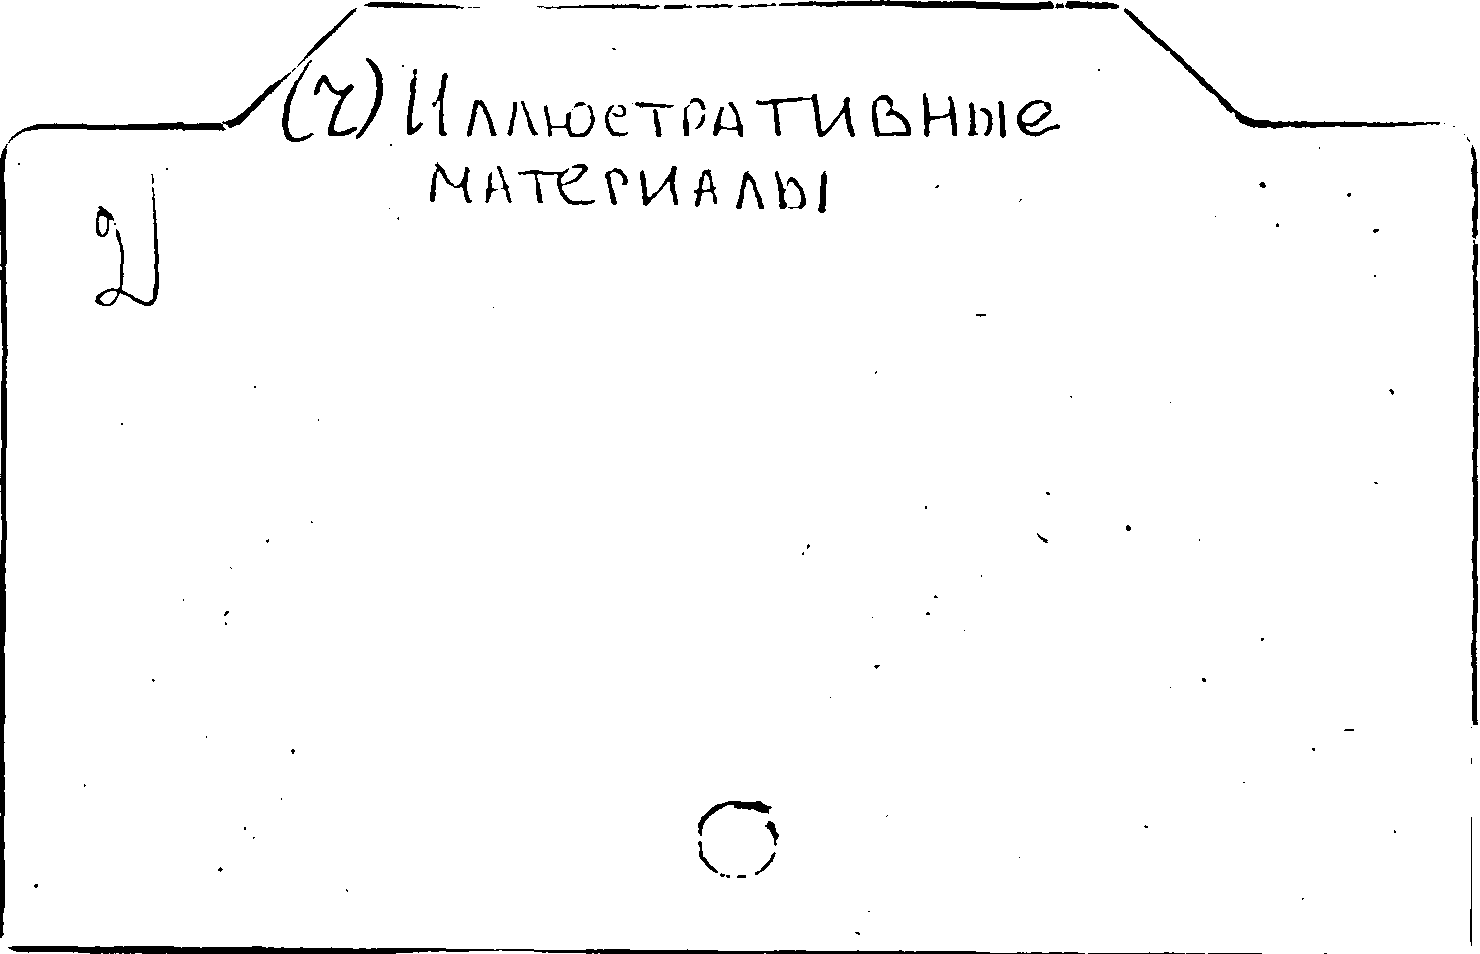 (2) Иллюстративные
материалы